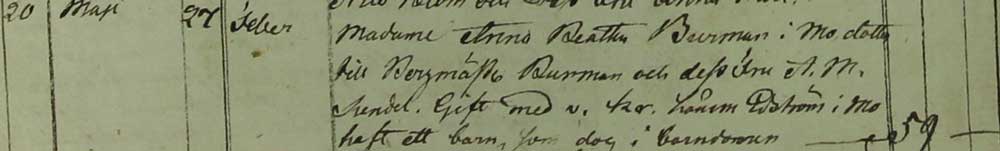 20 Maji 27 feber Madame Anna Beatha Burman i Mo, dotter
till Bergmäst. Burman och dess fru A. M.
Sendel. Gift med v. kr. Edström i Mo
haft ett barn, som dog i barndomen 59